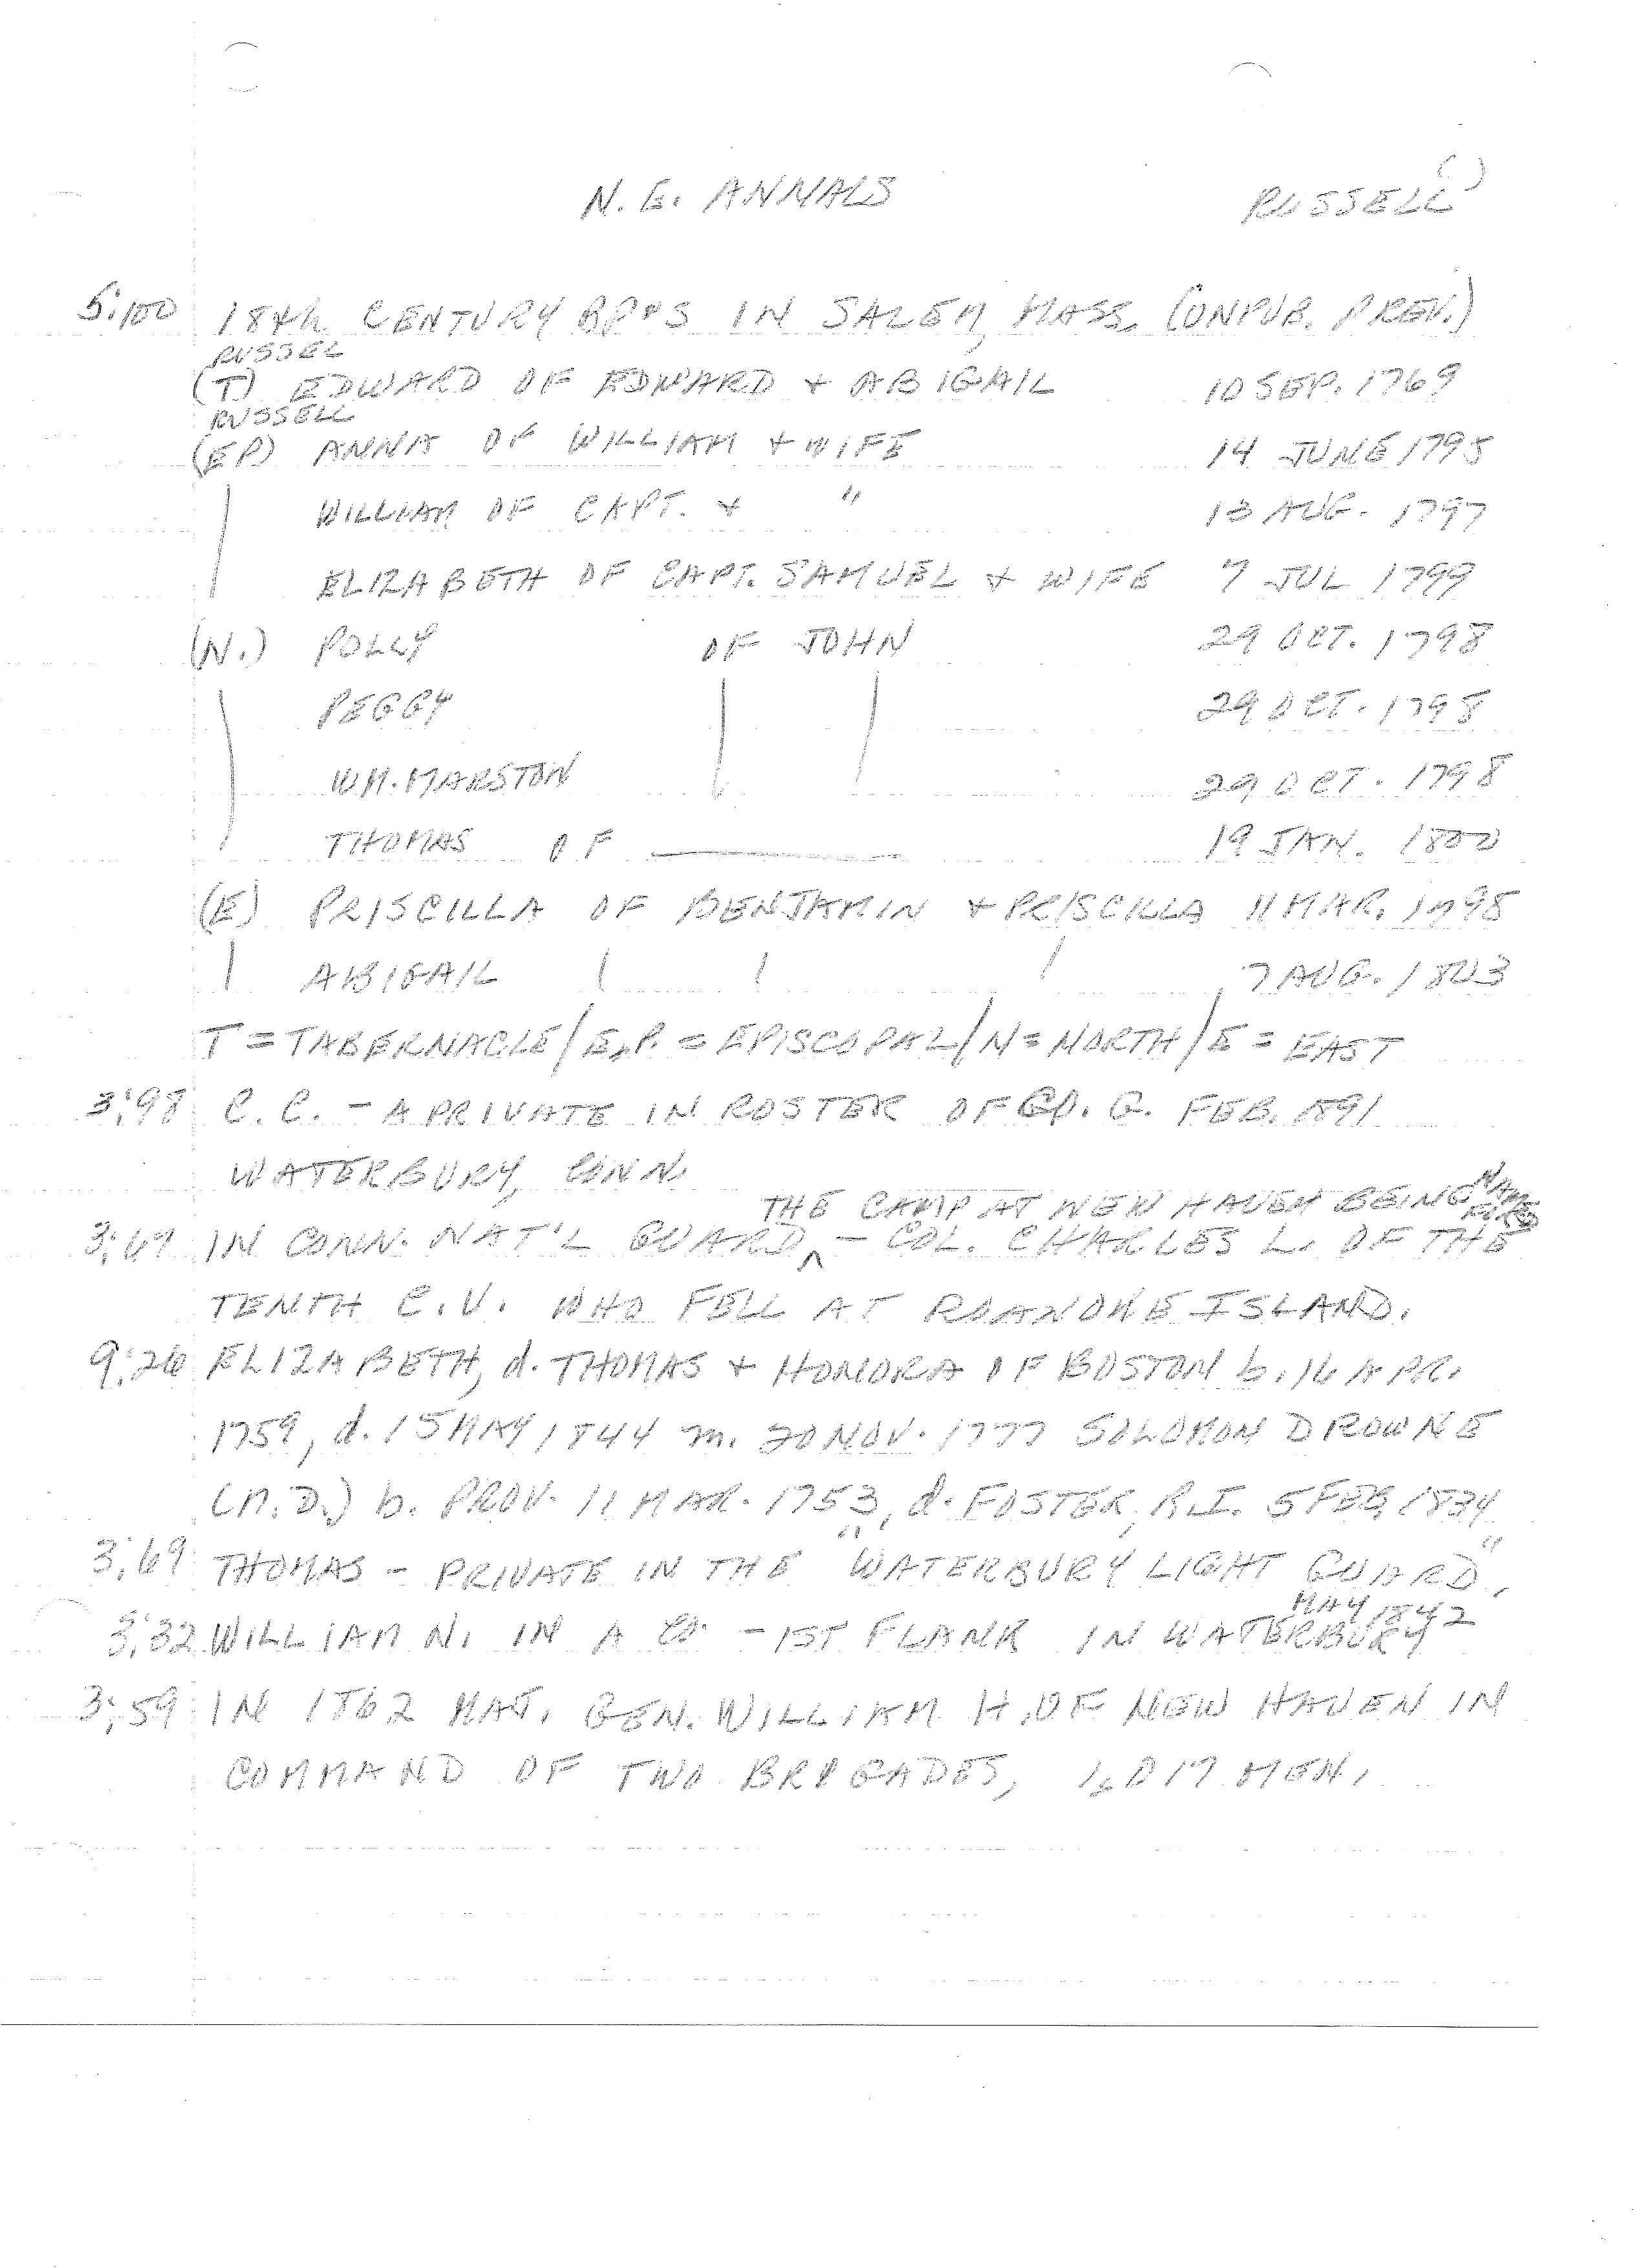 N. E. ANNALS RUSSELL ( )
5:100 18th CENTURY BP'S IN SALEM, MASS. (UNPUB. PREV.)
RUSSEL
(T) EDWARD OF EDWARD + ABIGAIL 10 SEP. 1769
RUSSELL
(EP) ANNA OF WILLIAM + WIFE 14 JUNE 1795
WILLIAM OF CAPT. + " 13 AUG. 1797
ELIZABETH OF CAPT. SAMUEL + WIFE 7 JUL 1799
(N.) POLLY OF JOHN 29 OCT. 1798
PEGGY 29 OCT. 1798
WM. MARSTON 29 OCT. 1798
THOMAS OF ———— 19 JAN. 1800
(E) PRISCILLA OF BENJAMIN + PRISCILLA 11 MAR. 1798
ABIGAIL 7 AUG. 1803
T = TABERNACLE / E.P. = EPISCOPAL / N = NORTH / E = EAST
3:98 C. C. - A PRIVATE IN ROSTER OF CO. G. FEB. 1891
WATERBURY, CONN.
THE CAMP AT NEW HAVEN BEING NAMED FOR
3:69 IN CONN. NAT'L GUARD, ^ - COL. CHARLES L. OF THE
TENTH C.V. WHO FELL AT ROANOKE ISLAND.
9:26 ELIZABETH, d. THOMAS + HONORA OF BOSTON b. 16 APR.
1759, d. 15 MAY 1844 m. 20 NOV. 1777 SOLOMON DROWNE
(M.D.) b. PROV. 11 MAR. 1753, d. FOSTER, R.I. 5 FEB. 1834
3:69 THOMAS - PRIVATE IN THE "WATERBURY LIGHT GUARD",
MAY 1842
3:32 WILLIAM N. IN A CO. - 1ST FLANK IN WATERBURY
3:59 IN 1862 MAJ. GEN. WILLIAM H. OF NEW HAVEN IN
COMMAND OF TWO BRIGADES, 1,017 MEN.